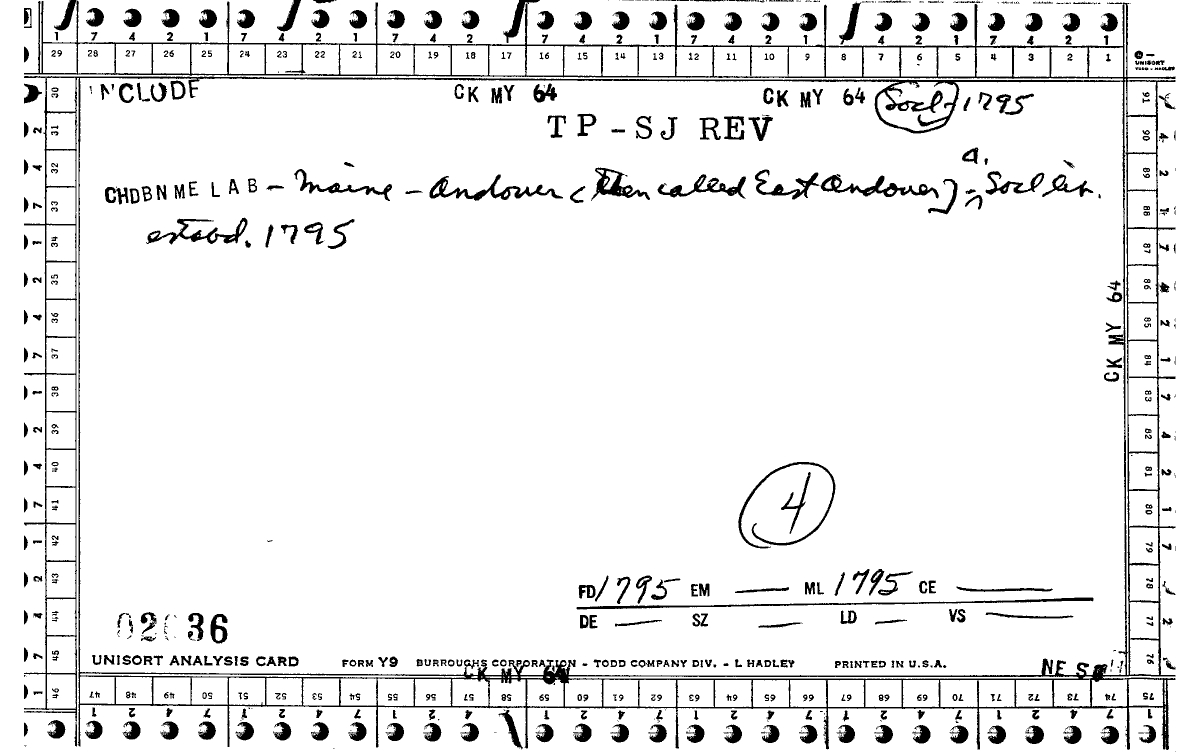 7 4 2 1 7 4 2 1 7 4 2 1 7 4 2 1 7 4 2 1 7 4 2 1 7 4 2 1
29 28 27 26 25 24 23 22 21 20 19 18 17 16 15 14 13 12 11 10 9 8 7 6 5 4 3 2 1
UNISORT
TODD - HADLEY
INCLUDE CK MY 64 CK MY 64 Socl - 1795
TP - SJ REV
CHDBNME LAB - Maine - Andover (then called East Andover) - a. Socl lib.
estabd. 1795
CK MY 64
4
FD 1795 EM — ML 1795 CE —
DE — SZ — LD — VS —
02 36
UNISORT ANALYSIS CARD FORM Y9 BURROUGHS CORPORATION - TODD COMPANY DIV. - L HADLEY PRINTED IN U.S.A.
CK MY 64 NE S
30 31 32 33 34 35 36 37 38 39 40 41 42 43 44 45 46
91 90 89 88 87 86 85 84 83 82 81 80 79 78 77 76 75
47 48 49 50 51 52 53 54 55 56 57 58 59 60 61 62 63 64 65 66 67 68 69 70 71 72 73 74 75